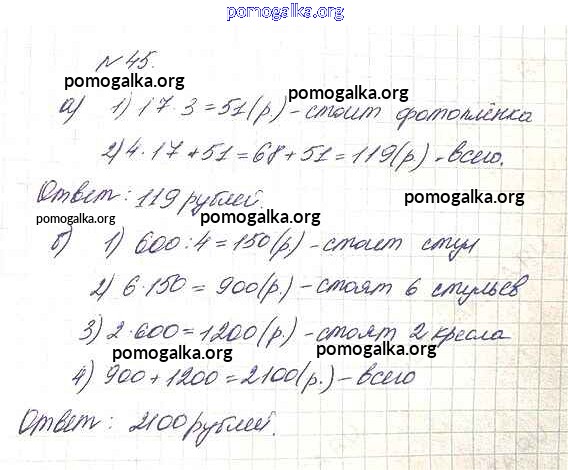 pomogalka.org
№45.
pomogalka.org pomogalka.org
а) 1) 17·3=51(р) - стоит фотоплёнка
2) 4·17+51=68+51=119(р) - всего.
Ответ: 119 рублей.
pomogalka.org
pomogalka.org pomogalka.org
б) 1) 600:4=150(р) - стоит стул
2) 6·150=900(р) - стоят 6 стульев
3) 2·600=1200(р.) - стоят 2 кресла
pomogalka.org pomogalka.org
4) 900+1200=2100(р.) - всего
Ответ: 2100 рублей.